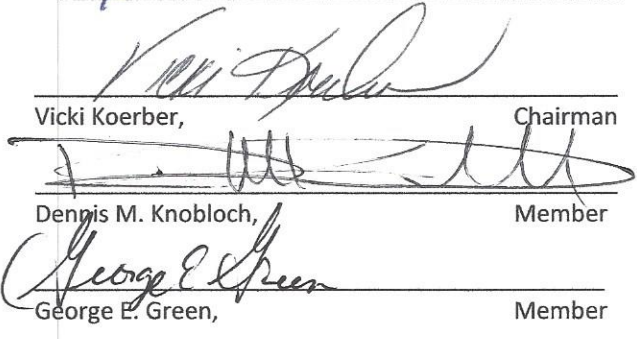 Vicki Koerber
Vicki Koerber, Chairman
Dennis M. Knobloch, Member
George E Green
George E. Green, Member